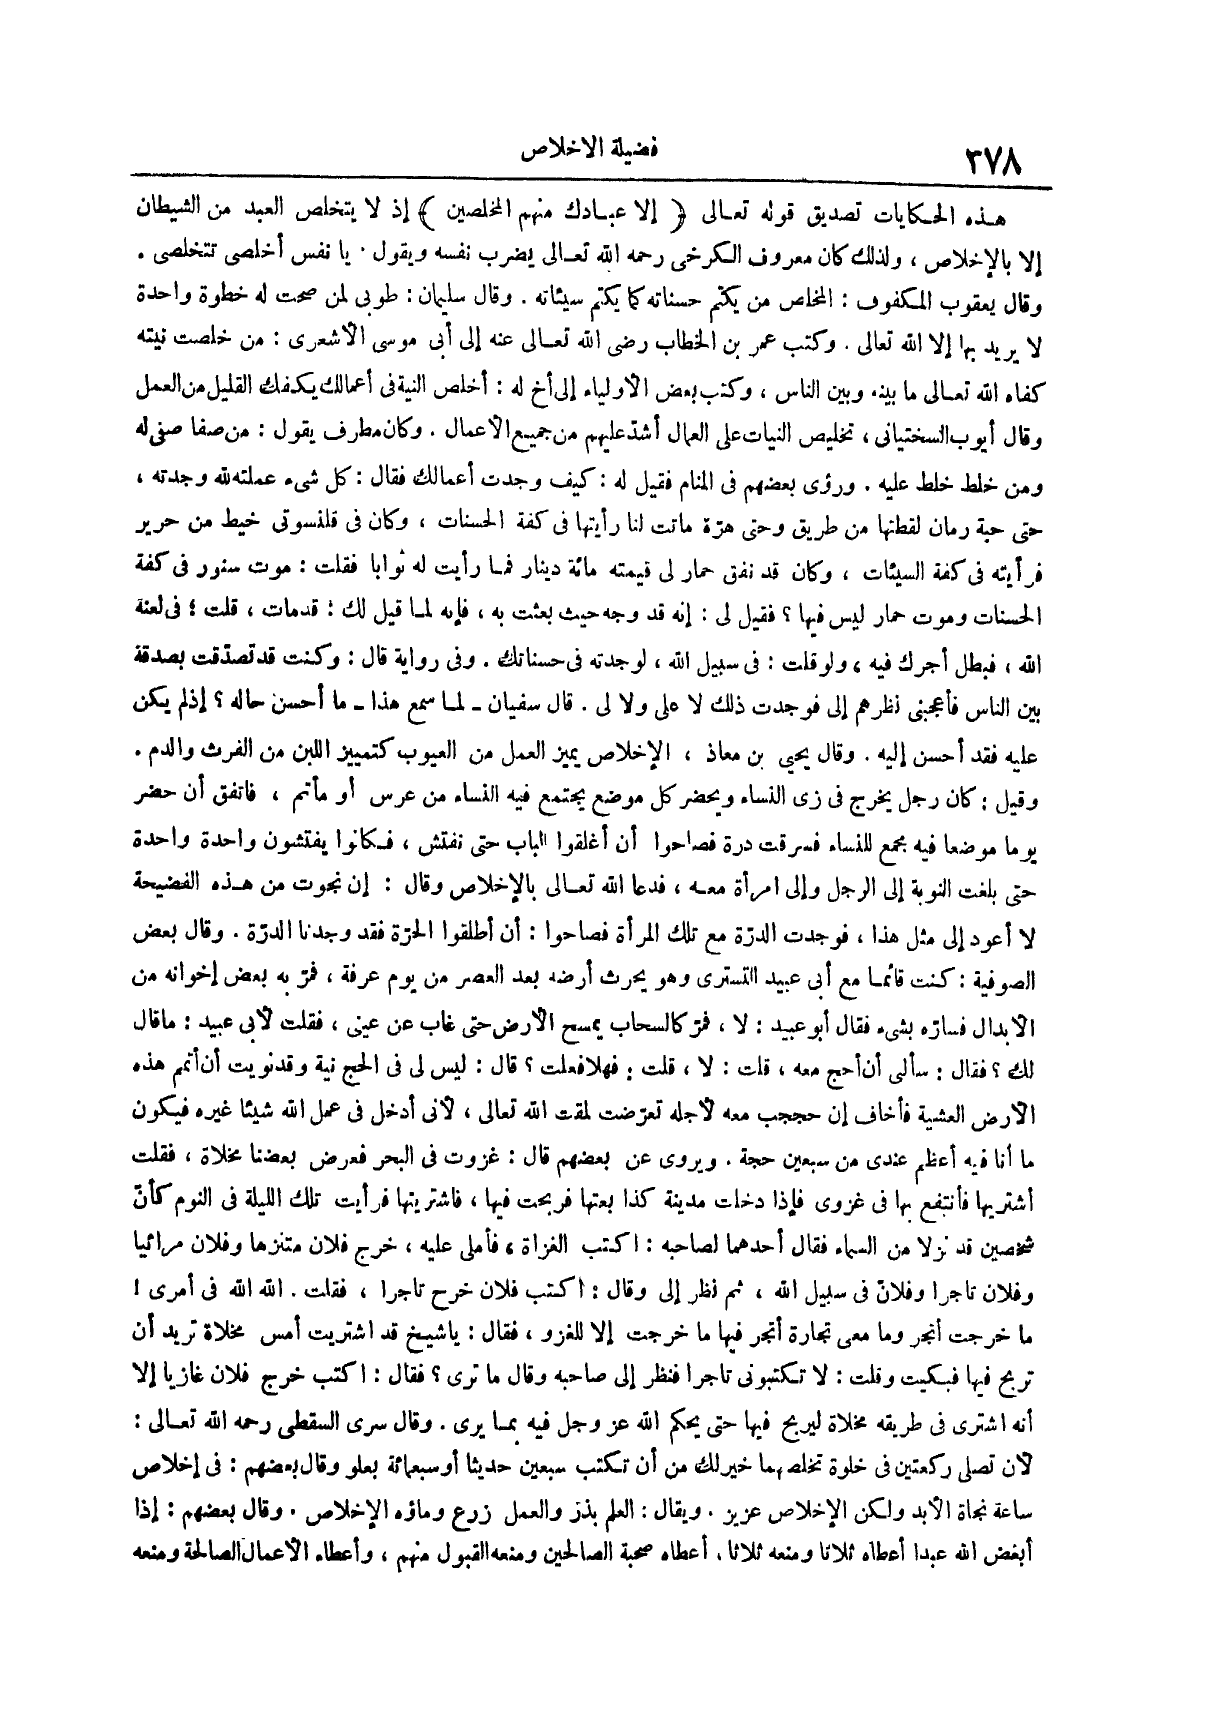 ٣٧٨
فضيلة الاخلاص
هذه الحكايات تصديق قوله تعالى ﴿ إلا عبادك منهم المخلصين ﴾ إذ لا يتخلص العبد من الشيطان
إلا بالإخلاص ، ولذلك كان معروف الكرخى رحمه الله تعالى يضرب نفسه ويقول . يا نفس أخلصى تتخلصى .
وقال يعقوب المكفوف : المخلص من يكتم حسناته كما يكتم سيئاته . وقال سليمان : طوبى لمن صحت له خطوة واحدة
لا يريد بها إلا الله تعالى . وكتب عمر بن الخطاب رضى الله تعالى عنه إلى أبى موسى الأشعرى : من خلصت نيته
كفاه الله تعالى ما بينه وبين الناس ، وكتب بعض الأولياء إلى أخ له : أخلص النية فى أعمالك يكفك القليل من العمل
وقال أيوب السختيانى ، تخليص النيات على العمال أشدّ عليهم من جميع الأعمال . وكان مطرف يقول : من صفا صفى له
ومن خلط خلط عليه . ورؤى بعضهم فى المنام فقيل له : كيف وجدت أعمالك فقال : كل شىء عملته لله وجدته ،
حتى حبة رمان لقطتها من طريق وحتى هرّة ماتت لنا رأيتها فى كفة الحسنات ، وكان فى قلنسوتى خيط من حرير
فرأيته فى كفة السيئات ، وكان قد نفق حمار لى قيمته مائة دينار فما رأيت له ثوابا فقلت : موت سنور فى كفة
الحسنات وموت حمار ليس فيها ؟ فقيل لى : إنه قد وجه حيث بعثت به ، فإنه لما قيل لك : قد مات ، قلت ؛ فى لعنة
الله ، فبطل أجرك فيه ، ولو قلت : فى سبيل الله ، لوجدته فى حسناتك . وفى رواية قال : وكنت قد تصدّقت بصدقة
بين الناس فأعجبنى نظرهم إلى فوجدت ذلك لا على ولا لى . قال سفيان ـ لما سمع هذا ـ ما أحسن حاله ؟ إذ لم يكن
عليه فقد أحسن إليه . وقال يحيى بن معاذ ، الإخلاص يميز العمل من العيوب كتمييز اللبن من الفرث والدم .
وقيل : كان رجل يخرج فى زى النساء ويحضر كل موضع يجتمع فيه النساء من عرس أو مأتم ، فاتفق أن حضر
يوما موضعا فيه مجمع للنساء فسرقت درة فصاحوا أن أغلقوا الباب حتى نفتش ، فكانوا يفتشون واحدة واحدة
حتى بلغت النوبة إلى الرجل وإلى امرأة معه ، فدعا الله تعالى بالإخلاص وقال : إن نجوت من هذه الفضيحة
لا أعود إلى مثل هذا ، فوجدت الدرّة مع تلك المرأة فصاحوا : أن أطلقوا الحرّة فقد وجدنا الدرّة . وقال بعض
الصوفية : كنت قائما مع أبى عبيد التسترى وهو يحرث أرضه بعد العصر من يوم عرفة ، فمرّ به بعض إخوانه من
الأبدال فسارّه بشىء فقال أبو عبيد : لا ، فمرّ كالسحاب يمسح الأرض حتى غاب عن عينى ، فقلت لأبى عبيد : ما قال
لك ؟ فقال : سألنى أن أحج معه ، قلت : لا ، قلت : فهلا فعلت ؟ قال : ليس لى فى الحج نية وقد نويت أن أتمم هذه
الأرض العشية فأخاف إن حججب معه لأجله تعرّضت لمقت الله تعالى ، لأنى أدخل فى عمل الله شيئا غيره فيكون
ما أنا فيه أعظم عندى من سبعين حجة . ويروى عن بعضهم قال : غزوت فى البحر فعرض بعضنا مخلاة ، فقلت
أشتريها فأنتفع بها فى غزوى فإذا دخلت مدينة كذا بعتها فربحت فيها ، فاشتريتها فرأيت تلك الليلة فى النوم كأنّ
شخصين قد نزلا من السماء فقال أحدهما لصاحبه : اكتب الغزاة ، فأملى عليه ، خرج فلان متنزها وفلان مرائيا
وفلان تاجرا وفلانّ فى سبيل الله ، ثم نظر إلى وقال : اكتب فلان خرج تاجرا ، فقلت . الله الله فى أمرى !
ما خرجت أتجر وما معى تجارة أتجر فيها ما خرجت إلا للغزو ، فقال : يا شيخ قد اشتريت أمس مخلاة تريد أن
تربح فيها فبكيت وقلت : لا تكتبونى تاجرا فنظر إلى صاحبه وقال ما ترى ؟ فقال : اكتب خرج فلان غازيا إلا
أنه اشترى فى طريقه مخلاة ليربح فيها حتى يحكم الله عز وجل فيه بما يرى . وقال سرى السقطى رحمه الله تعالى :
لأن تصلى ركعتين فى خلوة تخلصهما خير لك من أن تكتب سبعين حديثا أو سبعمائة بعلو وقال بعضهم : فى إخلاص
ساعة نجاة الأبد ولكن الإخلاص عزيز . ويقال : العلم بذر والعمل زرع وماؤه الإخلاص . وقال بعضهم : إذا
أبغض الله عبدا أعطاه ثلاثا ومنعه ثلاثا ، أعطاه صحبة الصالحين ومنعه القبول منهم ، وأعطاه الأعمال الصالحة ومنعه